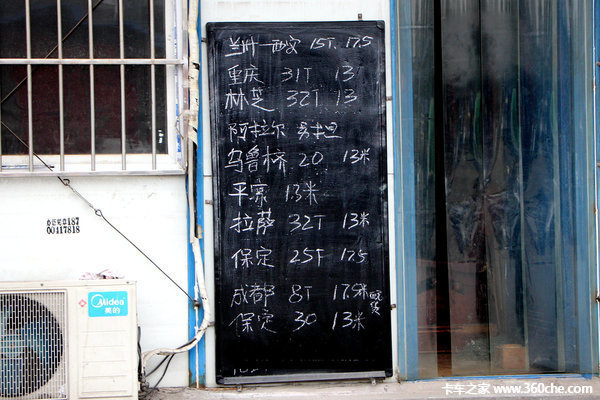 兰州—西安 15T. 17.5
重庆 31T 13
林芝 32T. 13
阿拉尔
乌鲁木桥 20 13米
平凉 13米
拉萨 32T 13米
保定 25T 17.5
成都 8T 17.5米
保定 30 13米
187
00117818
Midea
美的
卡车之家 www.360che.com